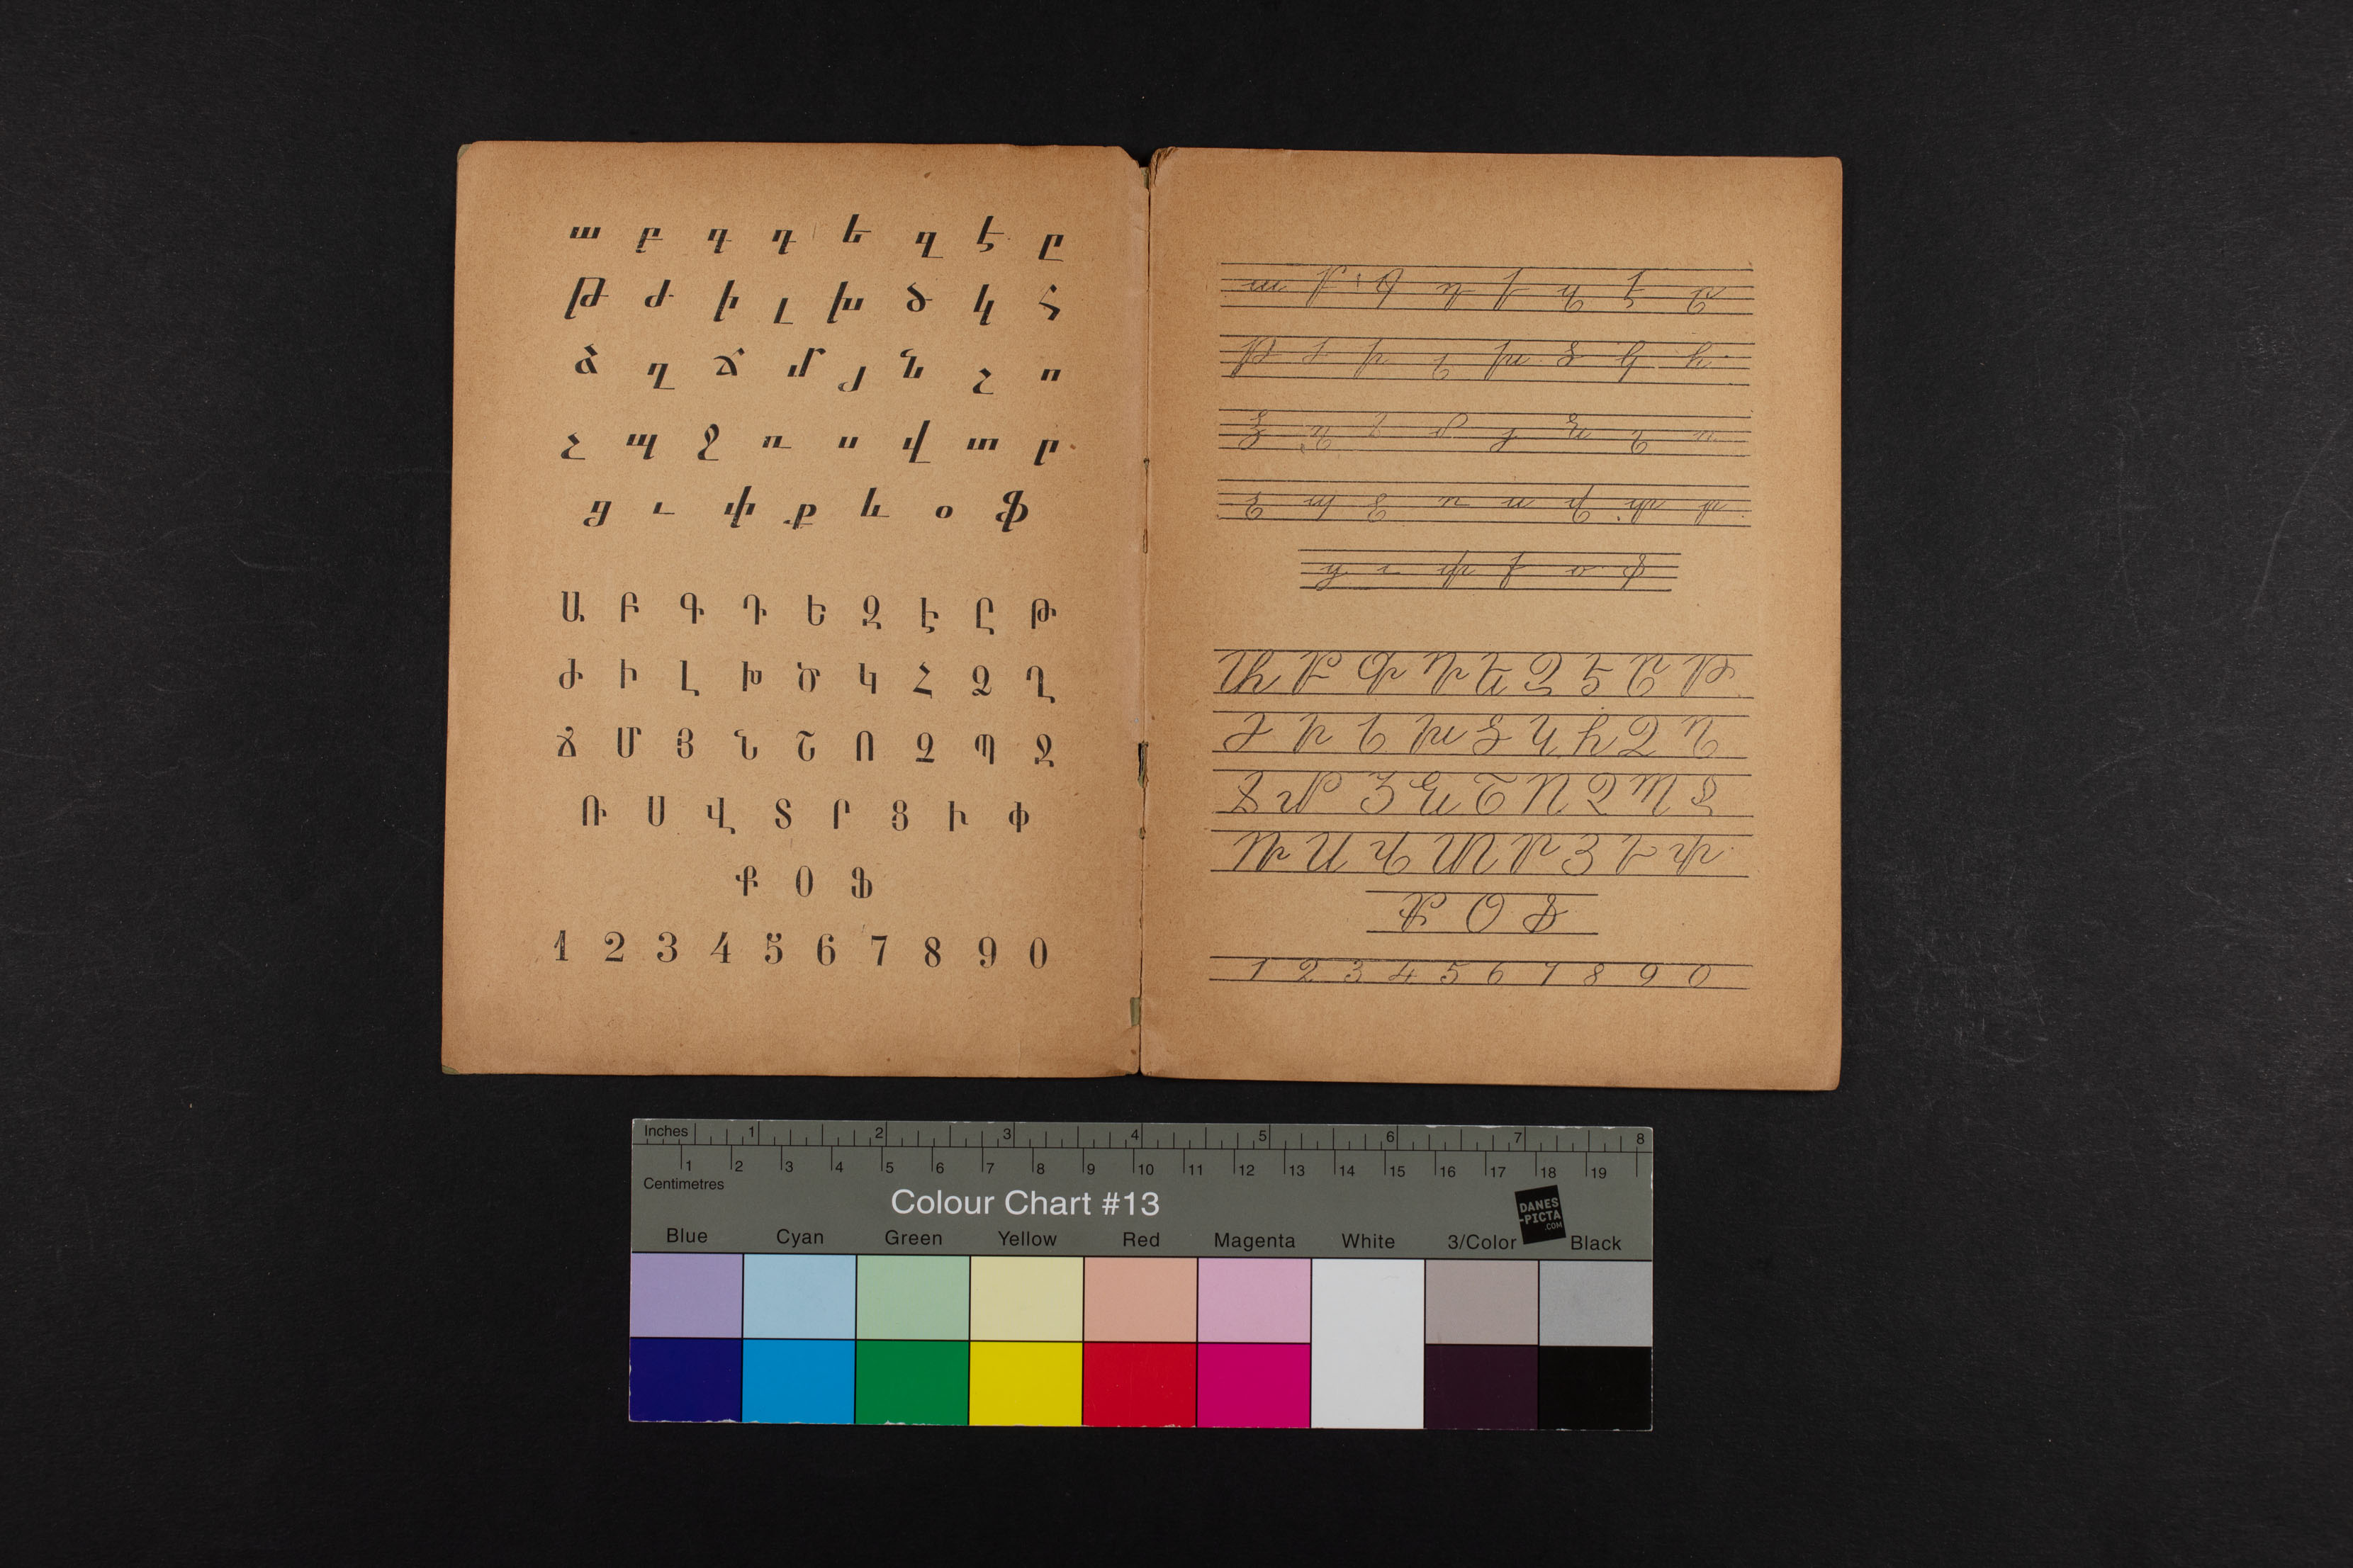 ա բ գ դ ե զ է ը
թ ժ ի լ խ ծ կ հ
ձ ղ ճ մ յ ն շ ո
չ պ ջ ռ ս վ տ ր
ց ւ փ ք և օ ֆ
Ա Բ Գ Դ Ե Զ Է Ը Թ
Ժ Ի Լ Խ Ծ Կ Հ Ձ Ղ
Ճ Մ Յ Ն Շ Ո Չ Պ Ջ
Ռ Ս Վ Տ Ր Ց Ւ Փ
Ք Օ Ֆ
1 2 3 4 5 6 7 8 9 0
ա բ գ դ ե զ է ը
թ ժ ի լ խ ծ կ հ
ձ ղ ճ մ յ ն շ ո
չ պ ջ ռ ս վ տ ր
ց ւ փ ք օ ֆ
Ա Բ Գ Դ Ե Զ Է Ը Թ
Ժ Ի Լ Խ Ծ Կ Հ Ձ Ղ
Ճ Մ Յ Ն Շ Ո Չ Պ Ջ
Ռ Ս Վ Տ Ր Ց Ւ Փ
Ք Օ Ֆ
1 2 3 4 5 6 7 8 9 0
Inches 1 2 3 4 5 6 7 8
1 2 3 4 5 6 7 8 9 10 11 12 13 14 15 16 17 18 19
Centimetres
Colour Chart #13
DANES
-PICTA
.COM
Blue Cyan Green Yellow Red Magenta White 3/Color Black